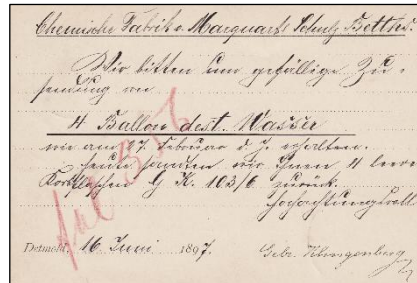 Chemische Fabrik v. Marquart's Schutz Betthd.
Wir bitten um gefällige Zu-
sendung von
4 Ballon dest. Wasser
wie am 27. Februar d. J. erhalten.
Heute sandten wir Ihnen 4 leere
Korbflaschen G K. 103/6 zurück.
Hochachtungsvoll
Detmold, 16 Juni 1897.
Gebr. Klingenberg